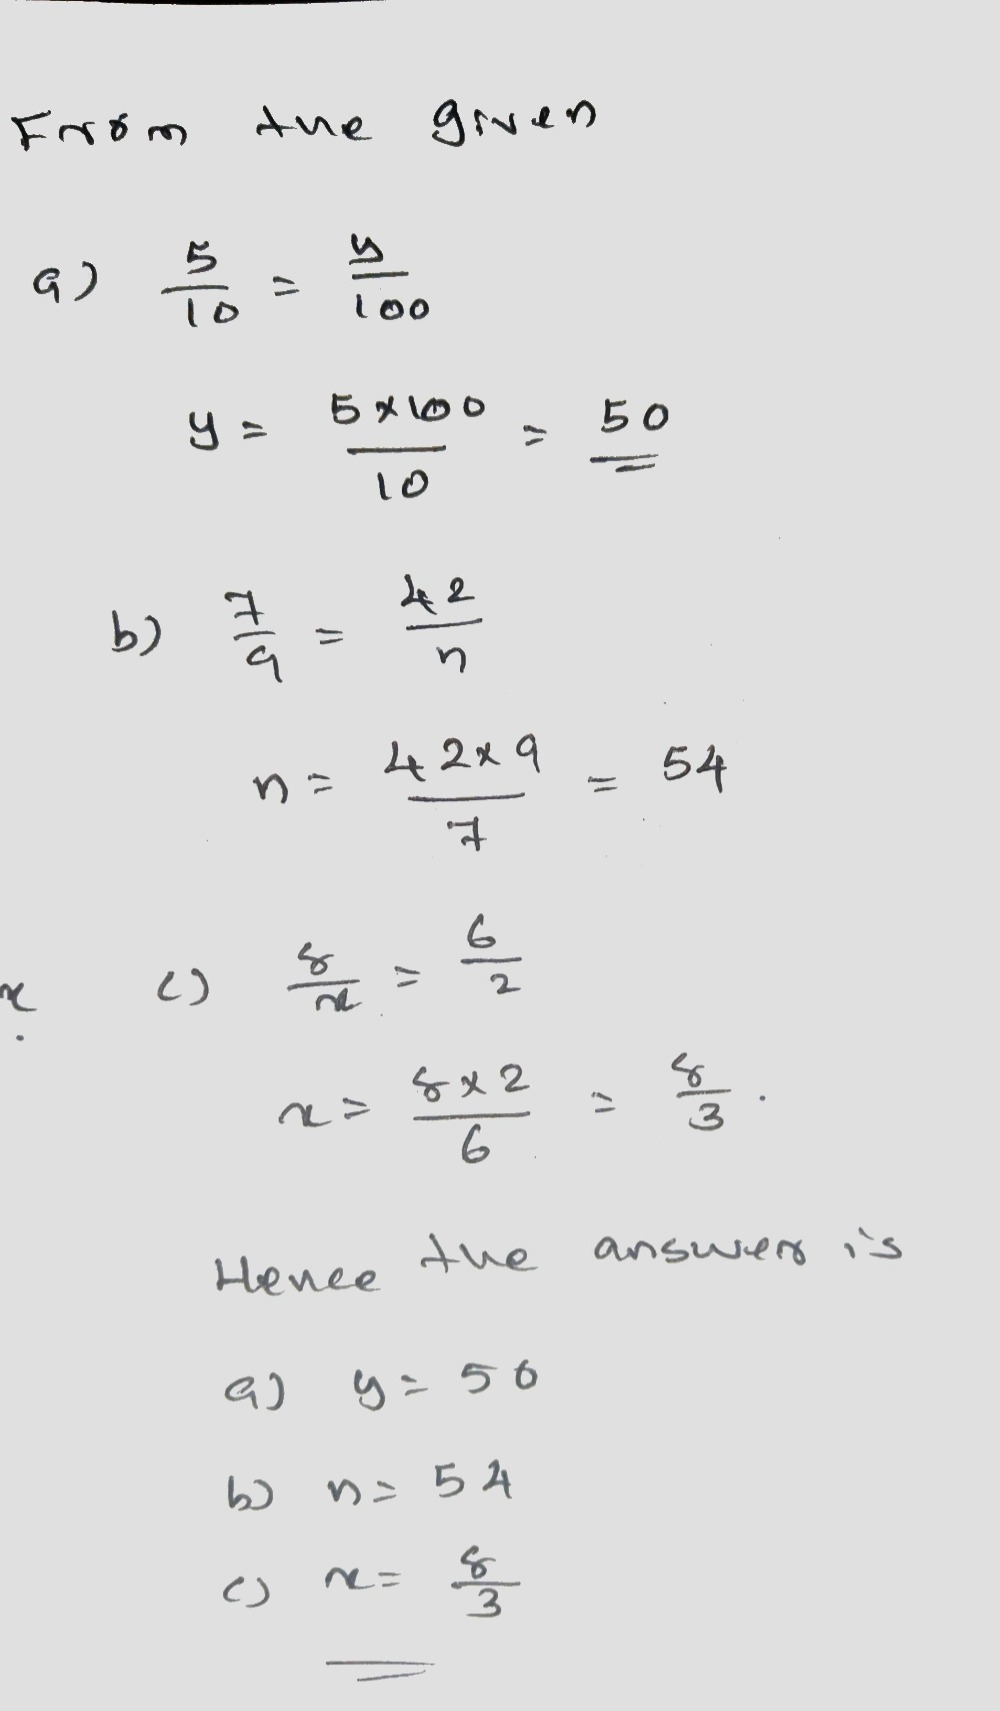 From the given
a) 5/10 = y/100
y = 5×100/10 = 50
b) 7/9 = 42/n
n = 42×9/7 = 54
x c) 8/x = 6/2
x = 8×2/6 = 8/3.
Hence the answer is
a) y = 50
b) n = 54
c) x = 8/3